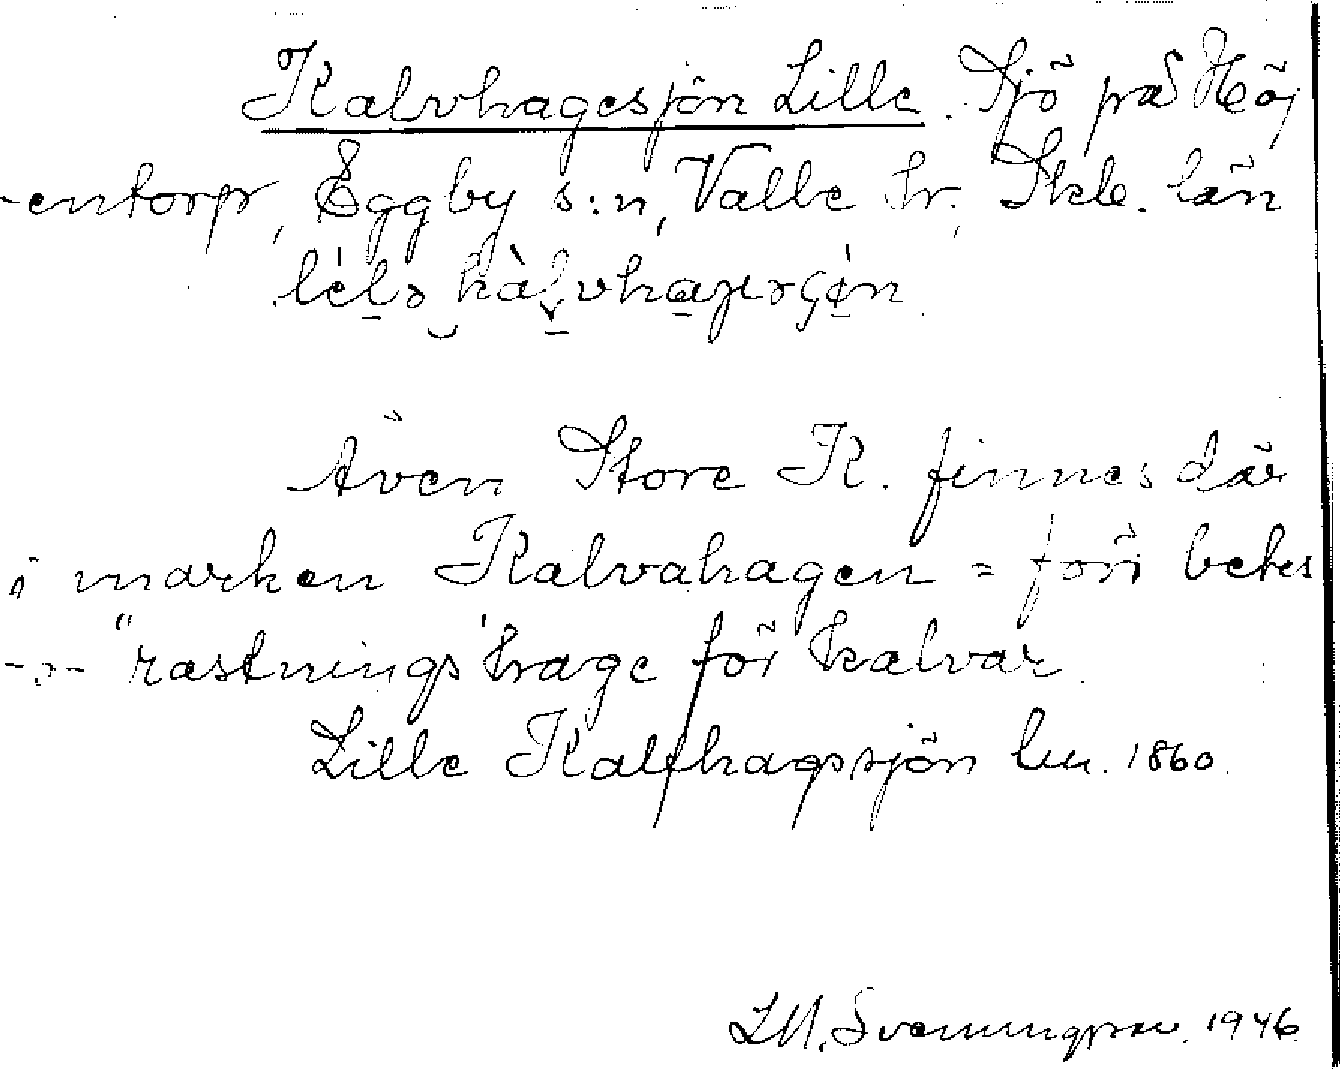 Kalvhagesjön Lille. Sjö på Höj
-entorp, Eggby s:n, Valle hr, Skb. län
Även Store K. finnes där
i marken Kalvahagen = förr betes
-"- rastningshage för kalvar.
Lille Kalfhagssjön 1860.
L M. Svenungsson. 1946